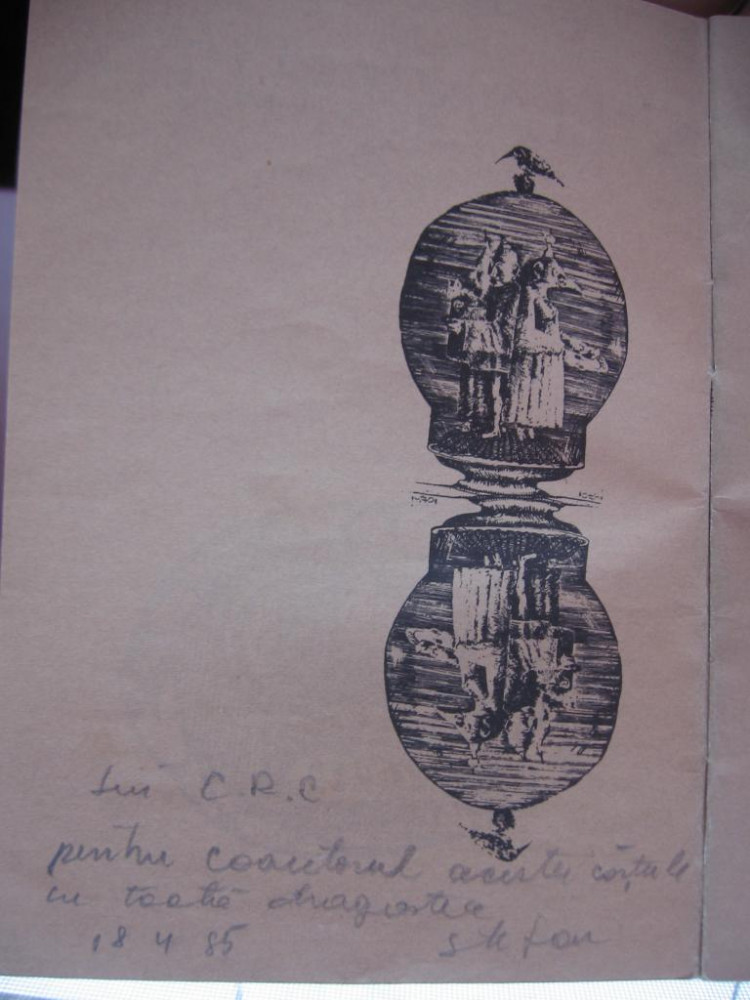 Lui C.R.C
pentru coautorul acestei cărțulii
cu toată dragostea
18 4 85